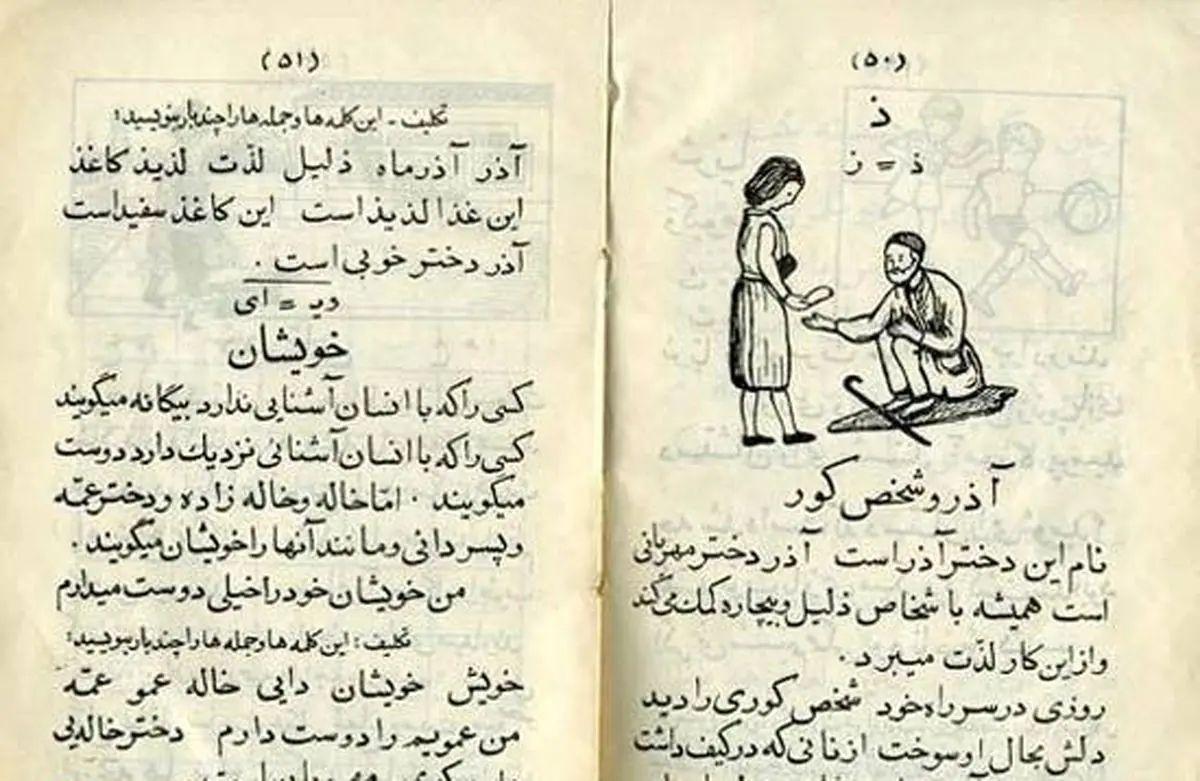 (۵۰)
ذ
ذ = ز
آذر و شخص کور
نام این دختر آذر است آذر دختر مهربانی
است همیشه با شخاص ذلیل و بیچاره کمک می‌کند
و از این کار لذّت میبرد.
روزی در سر راه خود شخص کوری را دید
دلش بحال او سوخت از نانی که در کیف داشت
(۵۱)
تکلیف - این کلمه ها و جمله ها را چند بار بنویسید:
آذر آذرماه ذلیل لذّت لذیذ کاغذ
این غذا لذیذ است این کاغذ سفید است
آذر دختر خوبی است.
ویـ = ای
خویشان
کسی را که با انسان آشنایی ندارد بیگانه میگویند
کسی را که با انسان آشنائی نزدیك دارد دوست
میگویند. امّا خاله و خاله زاده و دختر عمّه
و پسر دائی و مانند آنها را خویشان میگویند.
من خویشان خود را خیلی دوست میدارم
تکلیف: این کلمه ها و جمله ها را چند بار بنویسید:
خویش خویشان دایی خاله عمو عمّه
من عمویم را دوست دارم دختر خاله یی